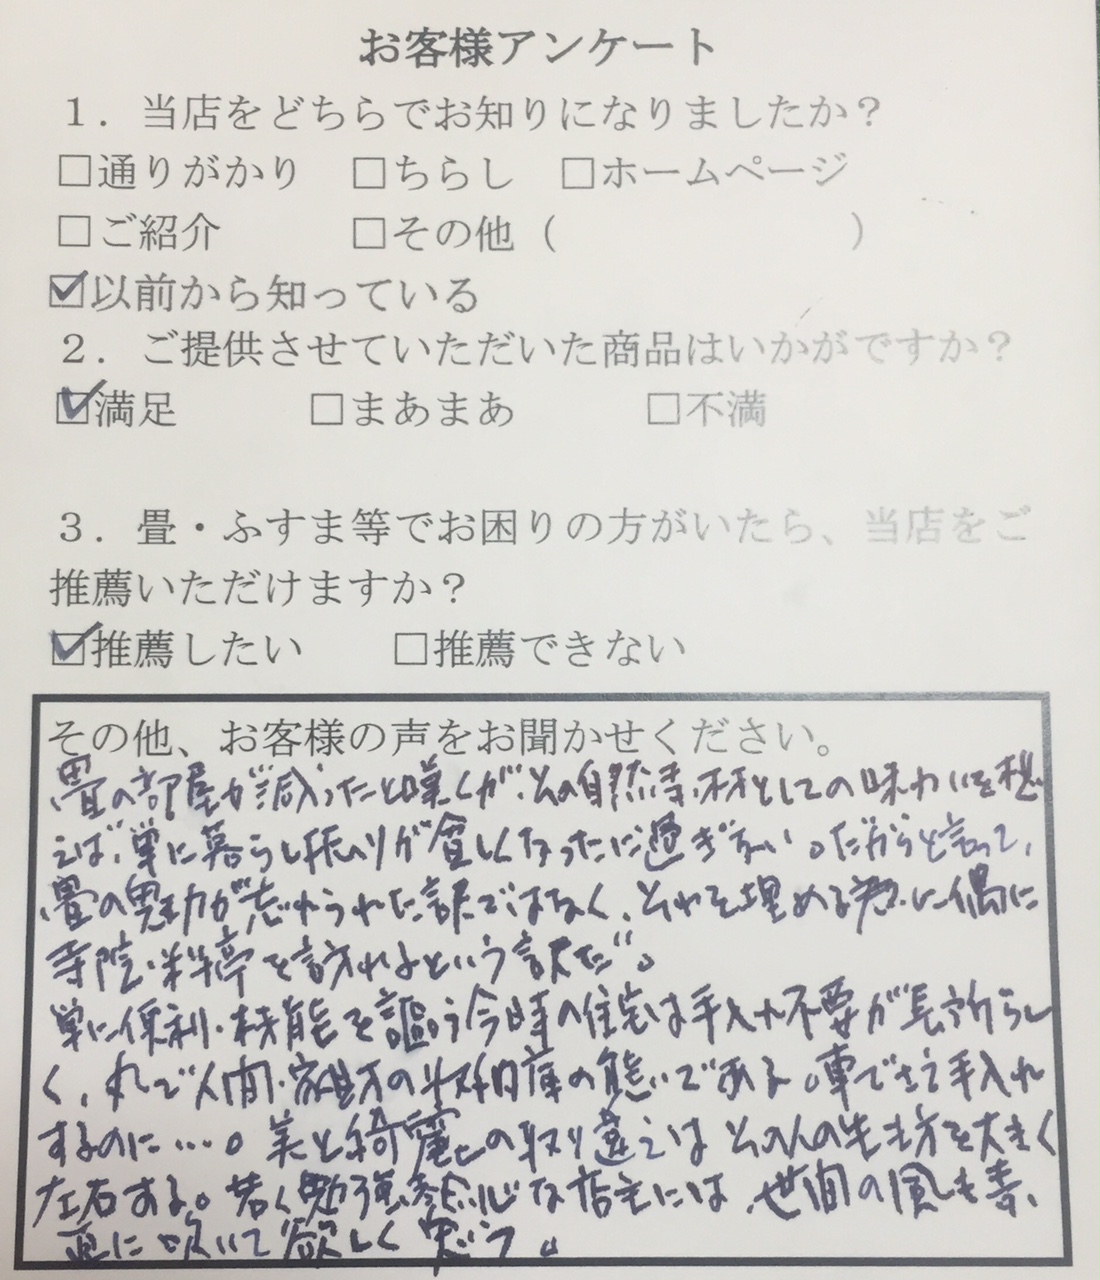 お客様アンケート
１．当店をどちらでお知りになりましたか？
□通りがかり　□ちらし　□ホームページ
□ご紹介　□その他（　　　）
☑以前から知っている
２．ご提供させていただいた商品はいかがですか？
☑満足　□まあまあ　□不満
３．畳・ふすま等でお困りの方がいたら、当店をご
推薦いただけますか？
☑推薦したい　□推薦できない
その他、お客様の声をお聞かせください。
畳の部屋が減ったと嘆くが、その自然素材としての味わいを想
えば、単に暮らし振りが貧しくなったに過ぎない。だからと言って、
畳の魅力が忘れられた訳ではなく、それを埋める為に偶に
寺院・料亭を訪れるという訳だ。
単に便利・機能を謳う今時の住宅は手入れ不要が長所らし
く、丸で人間・家財の収納庫の態いである。車でさえ手入れ
するのに…。美と綺麗との取り違えはその人の生き方を大きく
左右する。若く勉強熱心な店主には、世間の風も素
直に吹いて欲しく思う。